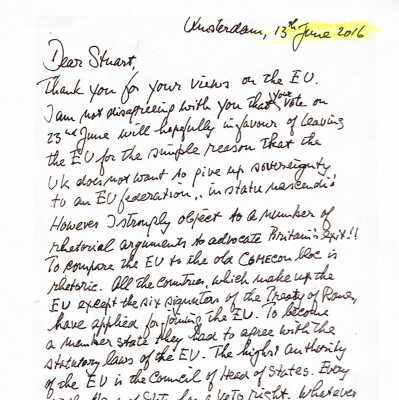 Amsterdam, 13th June 2016
Dear Stuart,
Thank you for your views on the EU.
I am not disagreeing with you that your vote on
23rd June will hopefully in favour of leaving
the EU for the simple reason that the
UK does not want to give up sovereignty
to an EU federation, "in statu nascendi"
However I strongly object to a number of
rhetorial arguments to advocate Britain's exit!!
To compare the EU to the old Comecon bloc is
rhetoric. All the countries, which make up the
EU except the six signators of the Treaty of Rome,
have applied for joining the EU. To become
a member state they had to agree with the
statutory laws of the EU. The highest authority
of the EU is the Council of Head of States. Every
a Veto right. Whatever